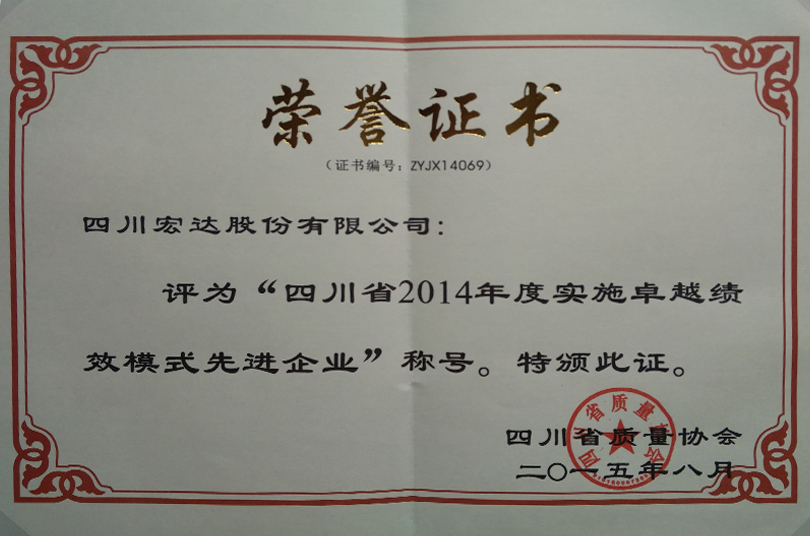 荣誉证书
（证书编号：ZYJX14069）
四川宏达股份有限公司：
评为“四川省2014年度实施卓越绩
效模式先进企业”称号。特颁此证。
四川省质量协会
四川省质量协会
二〇一五年八月